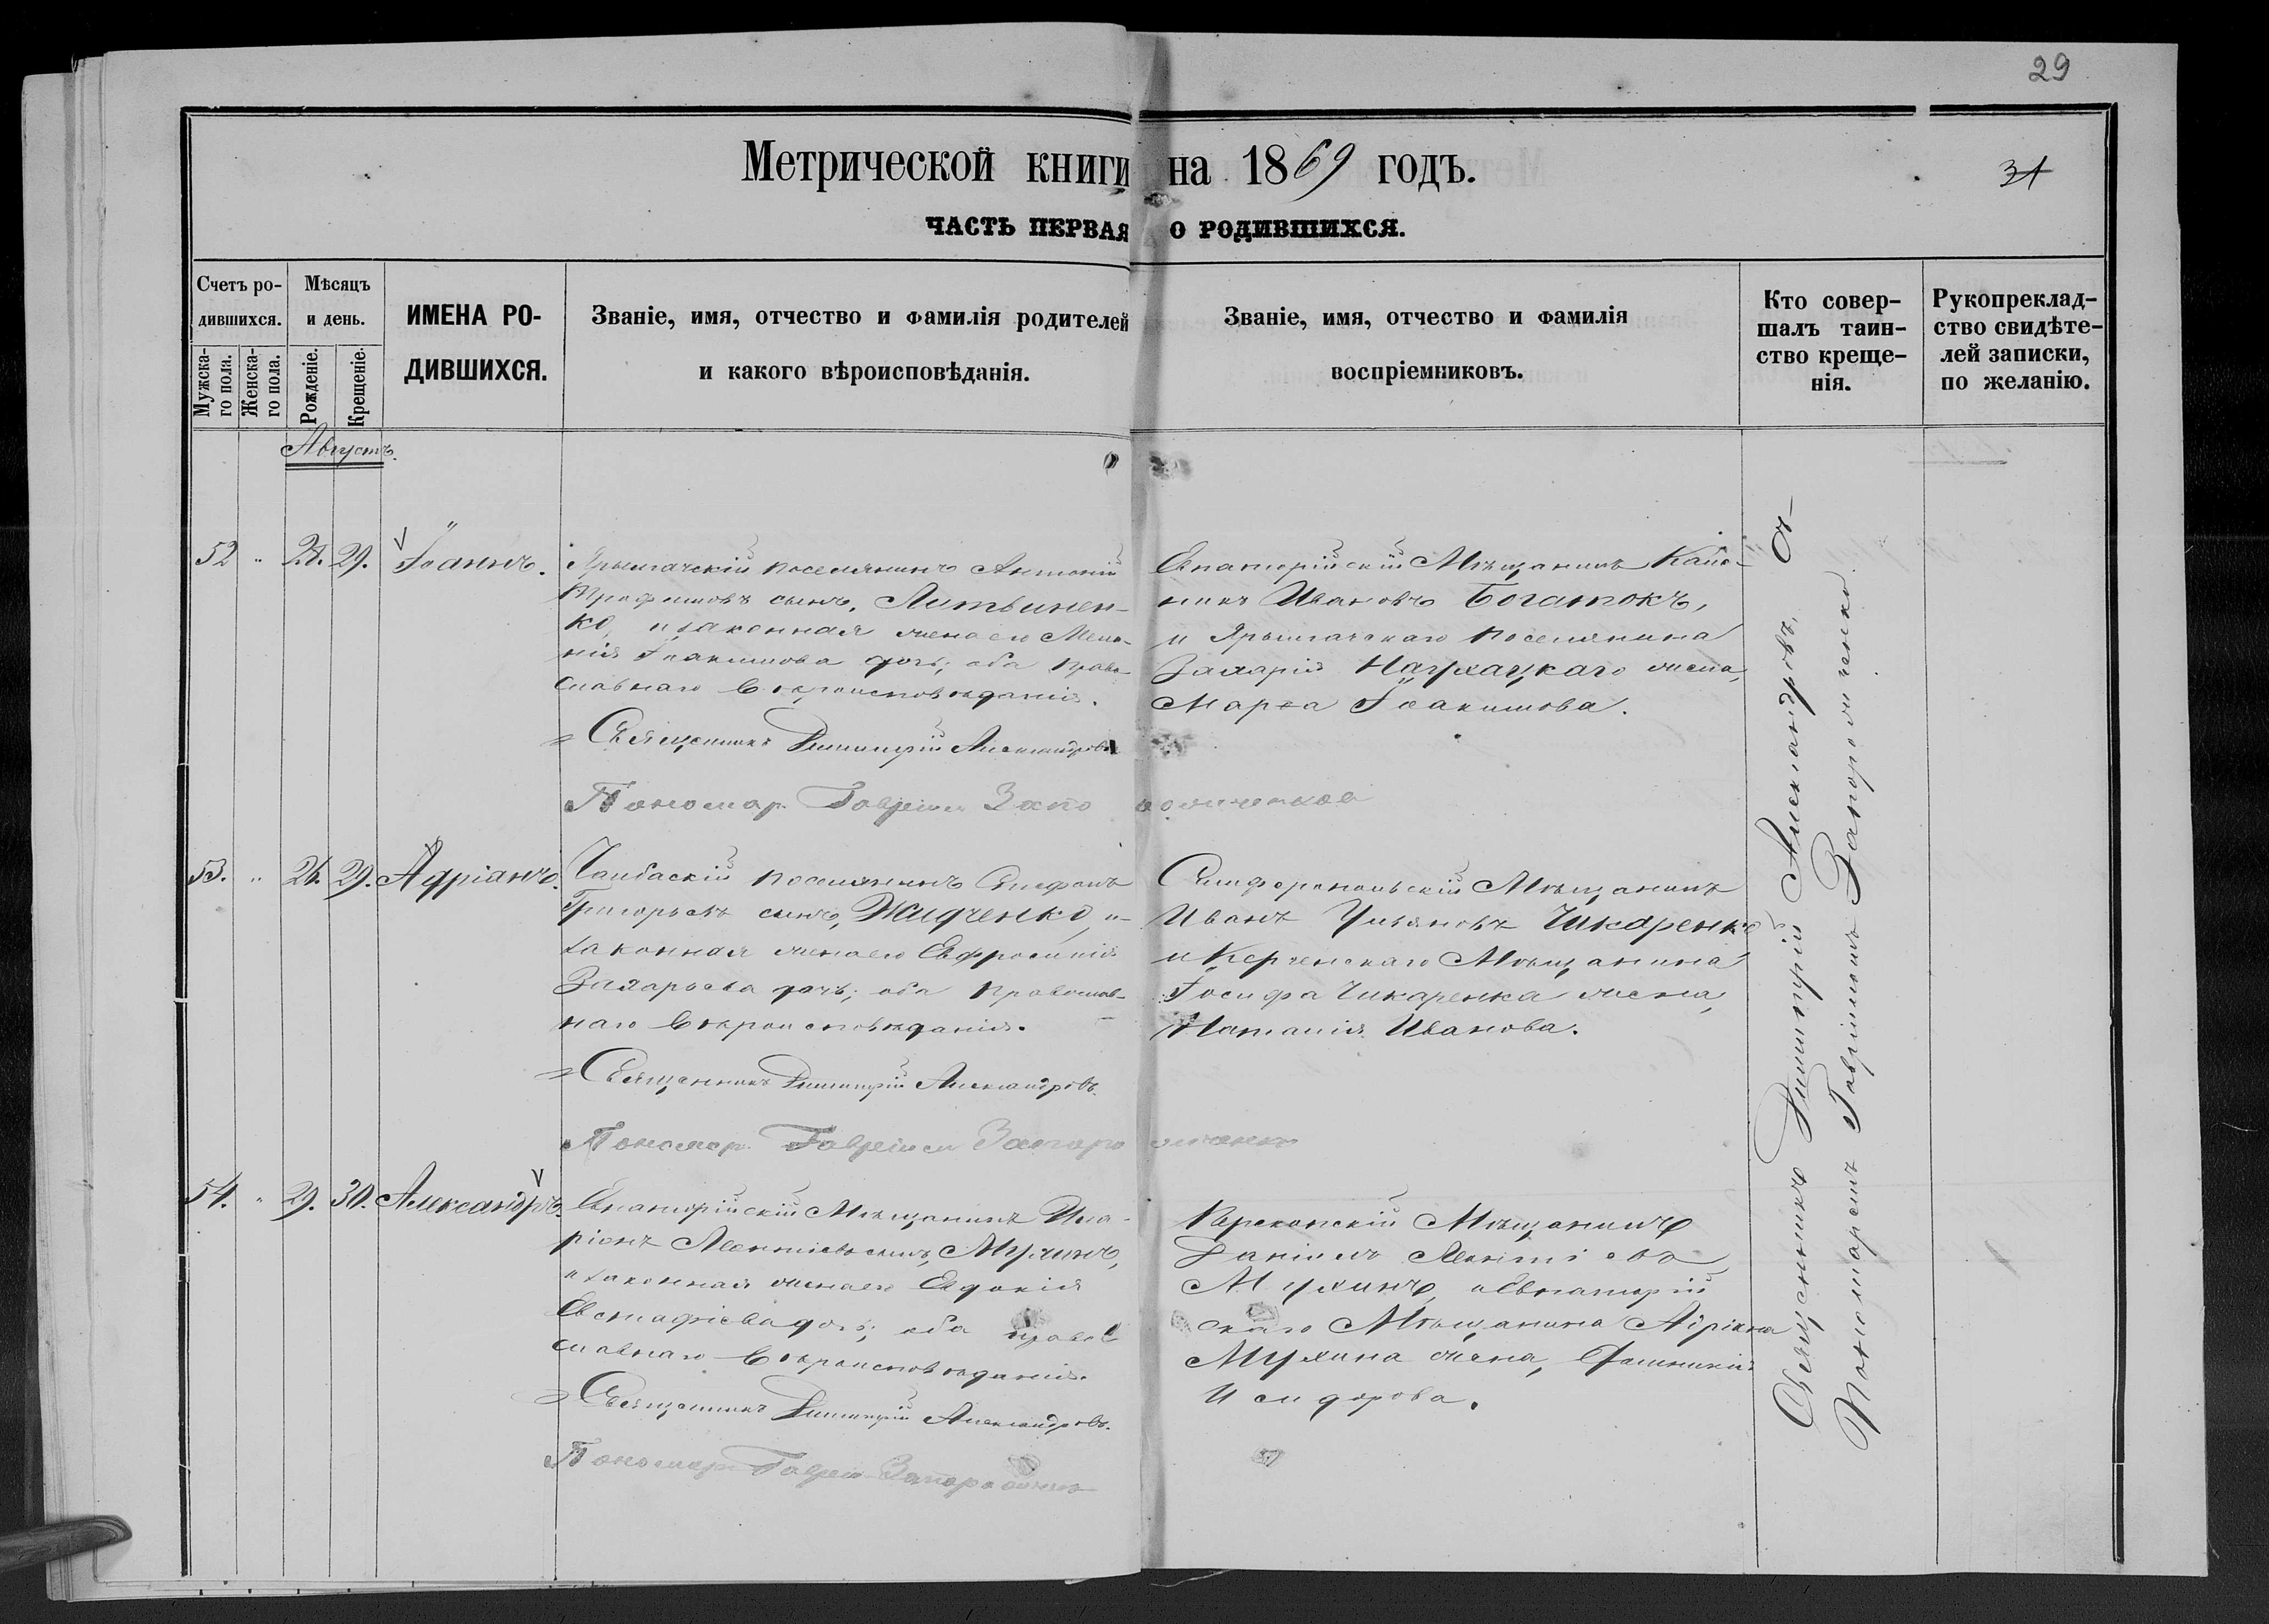 29
Метрической книги на 1869 годъ.
31
ЧАСТЬ ПЕРВАЯ О РОДИВШИХСЯ.
Счетъ ро-
дившихся.
Мужска-
го пола.
Женска-
го пола.
Мѣсяцъ
и день.
Рожденіе.
Крещеніе.
ИМЕНА РО-
ДИВШИХСЯ.
Званіе, имя, отчество и фамилія родителей
и какого вѣроисповѣданія.
Званіе, имя, отчество и фамилія
воспріемниковъ.
Кто совер-
шалъ таин-
ство креще-
нія.
Рукопреклад-
ство свидѣте-
лей записки,
по желанію.
Августъ.
52 " 28. 29. Іоаннъ.
Ярылгачскій поселянинъ Антоній
Трофимовъ сынъ, Литвинен-
ко, и законная жена его Мела-
нія Іоакимова дочь; оба право-
славнаго вѣроисповѣданія.
Священникъ Димитрій Александровъ
Пономар Гавріилъ Запорожченков
Евпаторійскій Мѣщанинъ
Ивановъ Богатокъ,
и Ярылгачскаго поселянина
Захарія Нагухацкаго жена,
Марѳа Іоакимова.
53. " 26. 29. Адріанъ.
Чанбаскій поселянинъ Стефанъ
Григорьевъ сынъ, Жидченко, и
законная жена его Евфросинія
Захарьева дочь; оба православ-
наго вѣроисповѣданія.
Священникъ Димитрій Александровъ
Пономар Гавріилъ Запорожченко
Симферопольскій Мѣщанинъ
Иванъ Ульяновъ Чикаренко
и Керченскаго Мѣщанина
Іосифа Чикаренка жена,
Наталія Иванова.
54. " 29. 30. Александръ.
Евпаторійскій Мѣщанинъ Ила-
ріонъ Леонтіевъ сынъ, Мухинъ,
и законная жена его Евдокія
Евстафіева дочь; оба право-
славнаго вѣроисповѣданія.
Священникъ Димитрій Александровъ.
Пономар Гавріи Запорожченко
Перекопскій Мѣщанинъ
Даніилъ Леонтіевъ
Мухинъ, и Евпаторій
скаго Мѣщанина Адріана
Мухина жена,
Исидорова.
Священникъ Димитрій Александровъ, съ
Пономаремъ Гавріиломъ Запорожченко.